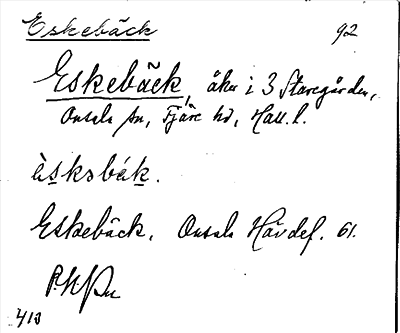 Eskebäck 92
Eskebäck, åker i 3 Staregården,
Onsala sn, Fjäre hd, Hall. l.
èsksbék.
Eskebäck. Onsala Hävdef. 61.
413